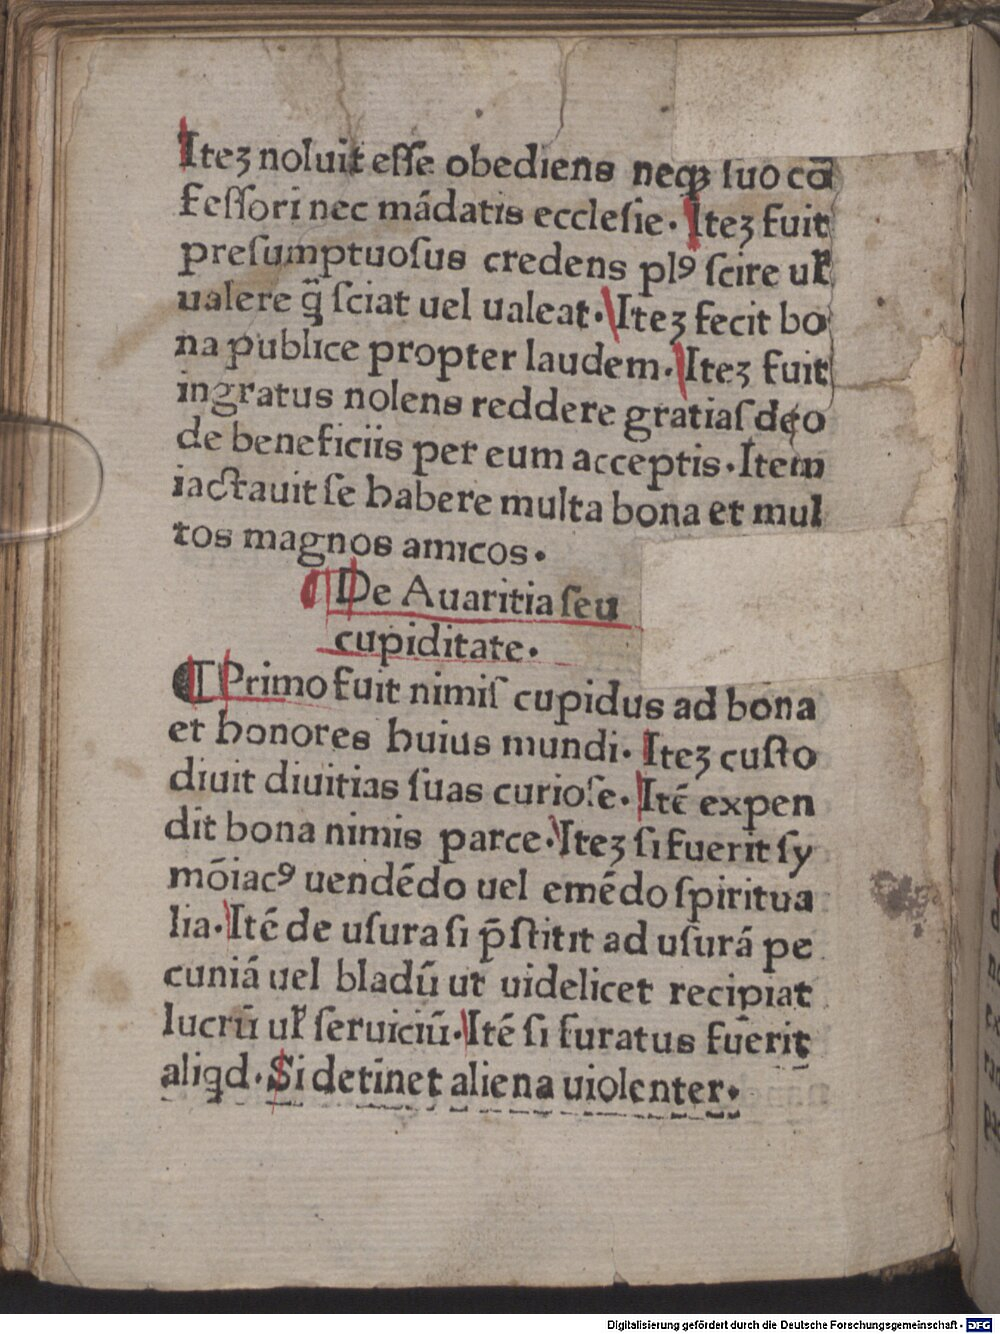 Iteꝫ noluit eſſe obediens neqꝫ ſuo cō
feſſori nec mādatis eccleſie. Iteꝫ fuit
preſumptuoſus credens plꝰ ſcire uƚ
ualere q̄ ſciat uel ualeat. Iteꝫ fecit bo
na publice propter laudem. Iteꝫ fuit
ingratus nolens reddere gratiaſ deo
de beneficiis per eum acceptis. Item
iactauit ſe habere multa bona et mul
tos magnos amicos.
¶ De Auaritia ſeu
cupiditate.
¶ Primo fuit nimiſ cupidus ad bona
et honores huius mundi. Iteꝫ cuſto
diuit diuitias ſuas curioſe. Itē expen
dit bona nimis parce. Iteꝫ ſi fuerit ſy
mōiacꝰ uendēdo uel emēdo ſpiritua
lia. Itē de uſura ſi p̄ſtitit ad uſurā pe
cuniā uel bladū ut uidelicet recipiat
lucrū uƚ ſeruiciū. Itē ſi furatus fuerit
aliqd. Si detinet aliena uiolenter.
Digitalisierung gefördert durch die Deutsche Forschungsgemeinschaft - DFG